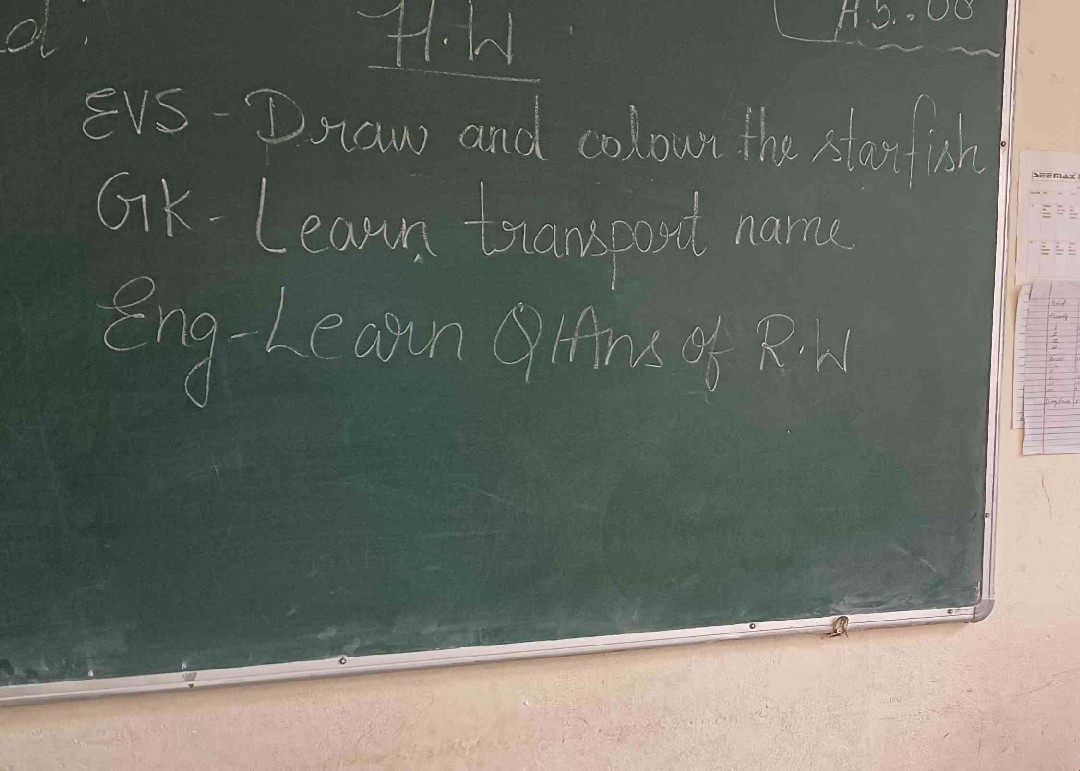 H.W
EVS - Draw and colour the starfish
GK - Learn transport name
Eng - Learn Q/Ans of R.W
SEEMAX